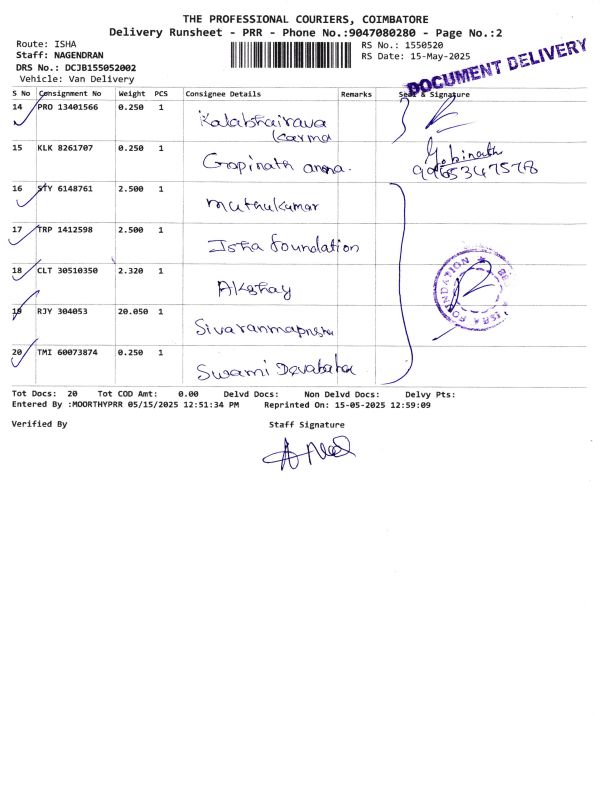 THE PROFESSIONAL COURIERS, COIMBATORE
Delivery Runsheet - PRR - Phone No.:9047080280 - Page No.:2
Route: ISHA
Staff: NAGENDRAN
DRS No.: DCJB155052002
Vehicle: Van Delivery
RS No.: 1550520
RS Date: 15-May-2025
DOCUMENT DELIVERY
S No Consignment No Weight PCS Consignee Details Remarks Seal & Signature
14 PRO 13401566 0.250 1 Kalabhairava Karma
15 KLK 8261707 0.250 1 Gopinath
Gobinath
9965347578
16 STY 6148761 2.500 1 Muthukumar
17 TRP 1412598 2.500 1 Isha foundation
18 CLT 30510350 2.320 1 Akshay
19 RJY 304053 20.050 1
20 TMI 60073874 0.250 1 Swami
ISHA FOUNDATION
Tot Docs: 20 Tot COD Amt: 0.00 Delvd Docs: Non Delvd Docs: Delvy Pts:
Entered By :MOORTHYPRR 05/15/2025 12:51:34 PM Reprinted On: 15-05-2025 12:59:09
Verified By Staff Signature